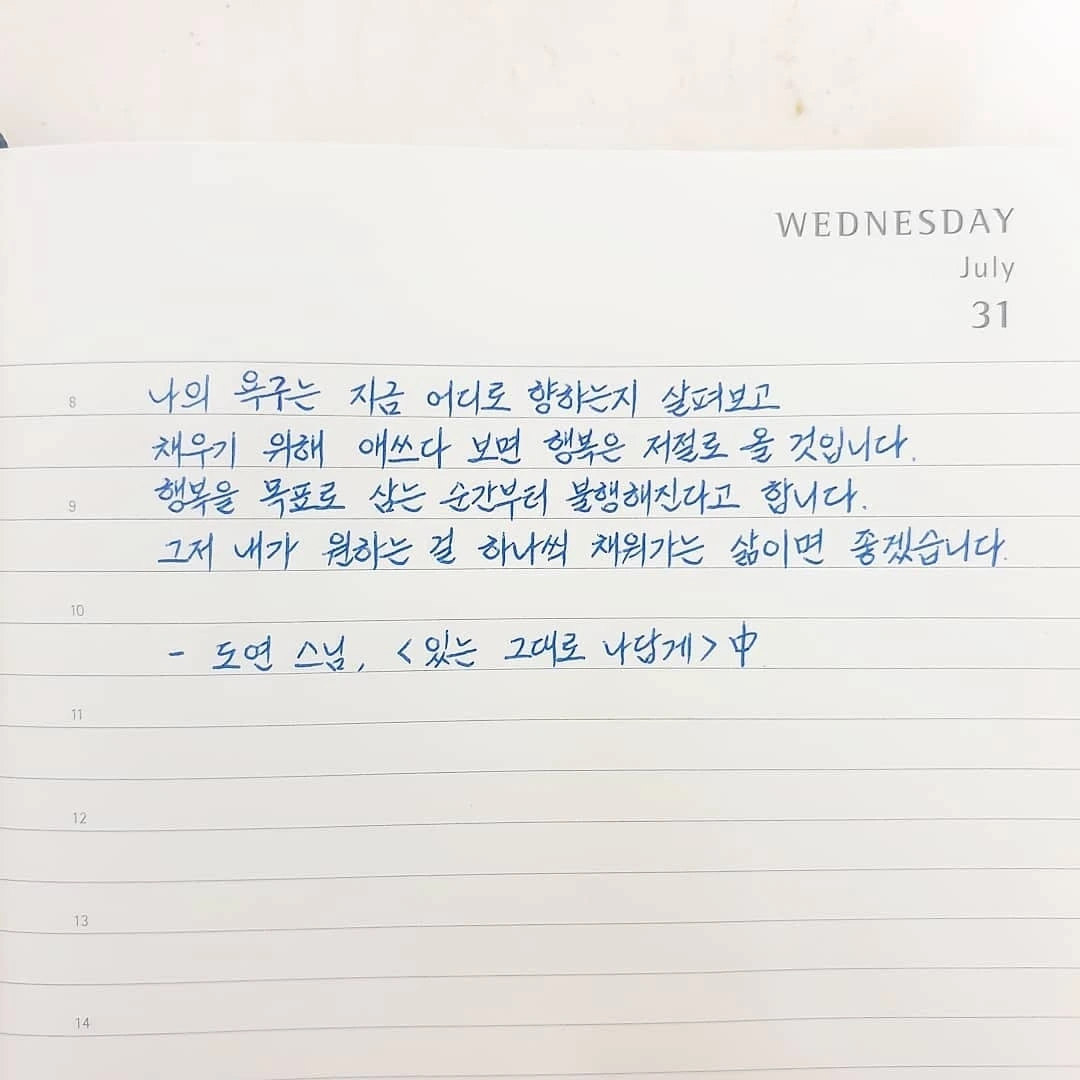 WEDNESDAY
July
31
8
나의 욕구는 지금 어디로 향하는지 살펴보고
채우기 위해 애쓰다 보면 행복은 저절로 올 것입니다.
9
행복을 목표로 삼는 순간부터 불행해진다고 합니다.
그저 내가 원하는 걸 하나씩 채워가는 삶이면 좋겠습니다.
10
- 도연 스님, <있는 그대로 나답게> 中
11
12
13
14